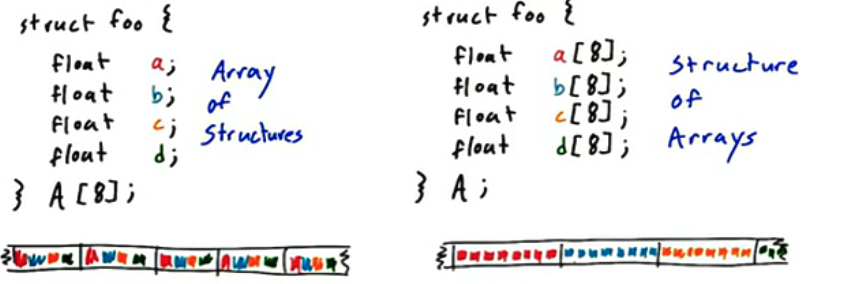 struct foo {
float a;
float b;
float c;
float d;
} A[8];
Array
of
Structures
struct foo {
float a[8];
float b[8];
float c[8];
float d[8];
} A;
Structure
of
Arrays